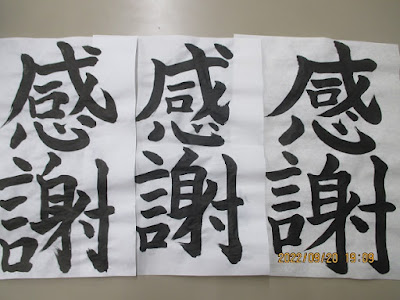 感謝
感謝
感謝
2022/08/20 19:09